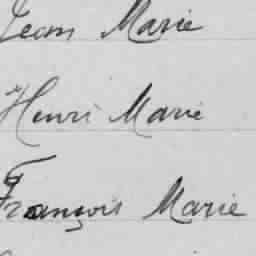 Jean Marie
Henri Marie
François Marie